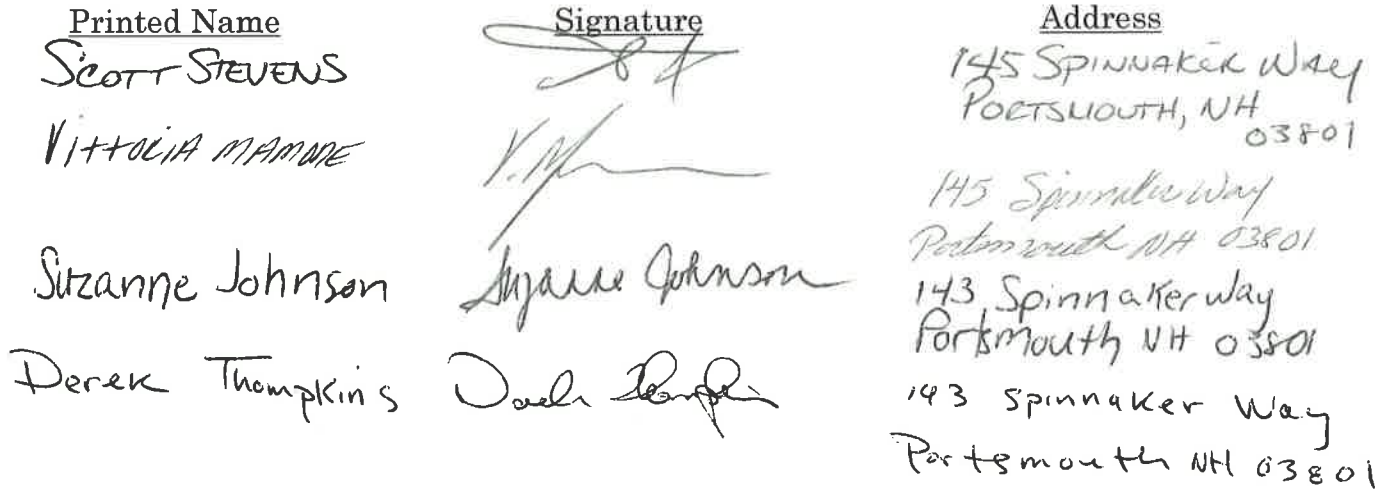 Printed Name Signature Address
SCOTT STEVENS 145 SPINNAKER WAY
PORTSMOUTH, NH
03801
VITTORIA MAMONE V. M 145 Spinnaker Way
Portsmouth NH 03801
Suzanne Johnson Suzanne Johnson 143 Spinnaker Way
Portsmouth NH 03801
Derek Thompkins Derek Thompkins 143 Spinnaker Way
Portsmouth NH 03801